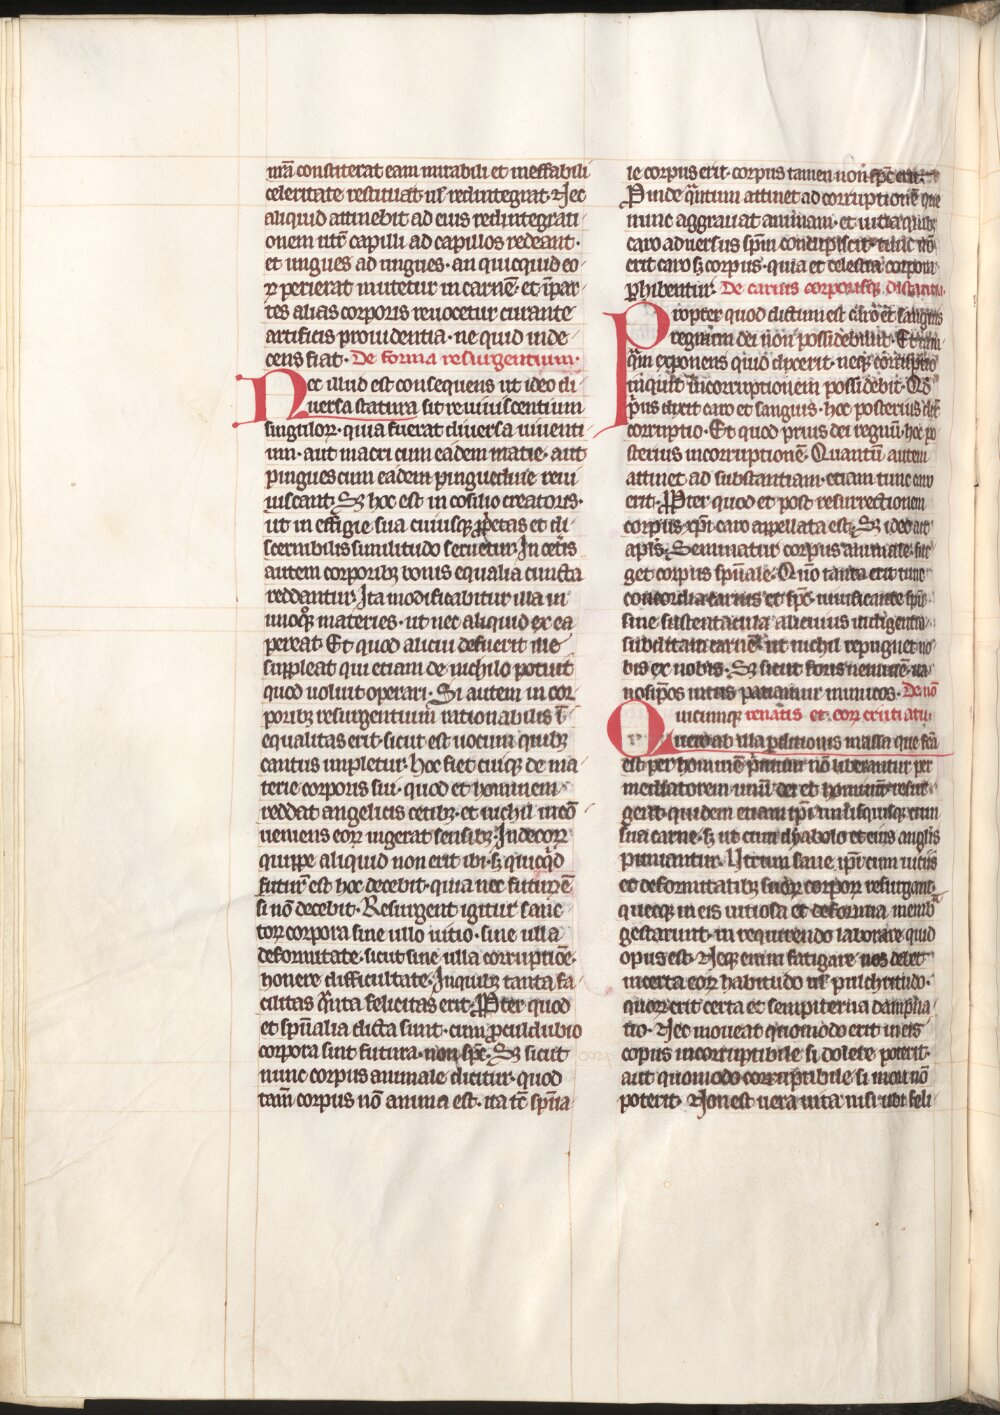 mrā constiterat eam mirabili et ineffabili
celeritate restituat ul̄ redintegrat. Nec
aliquid attinebit ad eius redintegrati
onem utr̄ capilli ad capillos redeant.
et ungues ad ungues. an quicquid eo
ꝝ perierat mutetur in carnē. et ī par
tes alias corporis reuocetur curante
artificis prouidentia. ne quid inde
cens fiat. De forma resurgentium.
Nec illud est consequens ut ideo di
uersa statura sit reuiuiscentium
singuloꝝ. quia fuerat diuersa uiuenti
um. aut macri cum eadem macie. aut
pingues cum eadem pinguedine reui
uiscant. Sꝫ hoc est in cōsilio creatoris.
ut in effigie sua cuiusqꝫ ꝓprietas et di
scernibilis similitudo seruetur. In cet̄is
autem corporibꝫ bonis equalia cuncta
reddantur. Ita modificabitur illa in
unoqꝫ materies. ut nec aliquid ex ea
pereat. Et quod alicui defuerit ille
suppleat qui etiam de nichilo potuit
quod uoluit operari. Si autem in cor
poribꝫ resurgentium rationabilis ī
equalitas erit. sicut est uocum quibꝫ
cantus impletur. hoc fiet cuiqꝫ de ma
terie corporis sui. quod et hominem
reddat angelicis cetibꝫ. et nichil incō
ueniens eoꝝ ingerat sensibꝫ. Indecoꝝ
quippe aliquid non erit ibi. sꝫ quicq̇d
futur̄ est hoc decebit. quia nec futuꝝ ē
si nō decebit. Resurgent igitur sanc
toꝝ corpora sine ullo uitio. sine ulla
deformitate. sicut sine ulla corruptiōe.
honere difficultate. In quibꝫ tanta fa
cilitas q̄nta felicitas erit. Ꝓpter quod
et spūalia dicta sunt. cum ꝓculdubio
corpora sint futura. non sp̄c. Sꝫ sicut
nunc corpus animale dicitur. quod
tam̄ corpus nō anima est. ita tc̄ spūa
le corpus erit. corpus tamen non sp̄c erit.
Pinde q̄ntum attinet ad corruptionē que
nunc aggrauat animam. et uitia quibꝫ
caro aduersus sp̄m concupiscit. tunc nō
erit caro sꝫ corpus. quia et celestia corpora
ꝑhibentur. De carnis corporisqꝫ distantia.
Propter quod dictum est caro et sanguis
regnum dei non possidebunt. Et tam
q̄m exponens quid dixerit. neqꝫ corruptio
inquit incorruptionem possidebit. Qd̄
prius dixit caro et sanguis. hoc posterius dix̄
corruptio. Et quod prius dei regnū. hoc po
sterius incorruptionē. Quantū autem
attinet ad substantiam. etiam tunc caro
erit. Ꝓpter quod et post resurrectionem
corpus xp̄i caro appellata est. Sꝫ ideo ait
apl̄s. Seminatur corpus animale. sur
get corpus spūale. Qm̄ tanta erit tunc
concordia carnis et sp̄c. uiuificante spū
sine sustentacula alicuius indigentia.
subditam carnē ut nichil repugnet no
bis ex nobis. Sꝫ sicut foris neminē. ita
nos ip̄os intus patiamur inimicos. De nō
renatis et eoꝝ cruciatu.
Quicumqꝫ
uero ab illa perditionis massa que fc̄a
est per hominē primum nō liberantur per
mediatorem unū dei et hominum. resur
gent quidem etiam ip̄i unusquisqꝫ cum
sua carne. sꝫ ut cum dyabolo et eius angl̄is
puniantur. Utrum sane ip̄i cum uitiis
et deformitatibꝫ suoꝝ corpoꝝ resurgant.
quecqꝫ in eis uitiosa et deformia memb
gestarunt. in requirendo laborare quid
opus est. Neqꝫ enim fatigare nos debet
incerta eoꝝ habitudo ul̄ pulchritudo.
quoꝝ erit certa et sempiterna dampna
tio. Nec moueat quomodo erit in eis
copus incorruptibile si dolere poterit.
aut quomodo corruptibile si mori nō
poterit. Non est uera uita nisi ubi feli